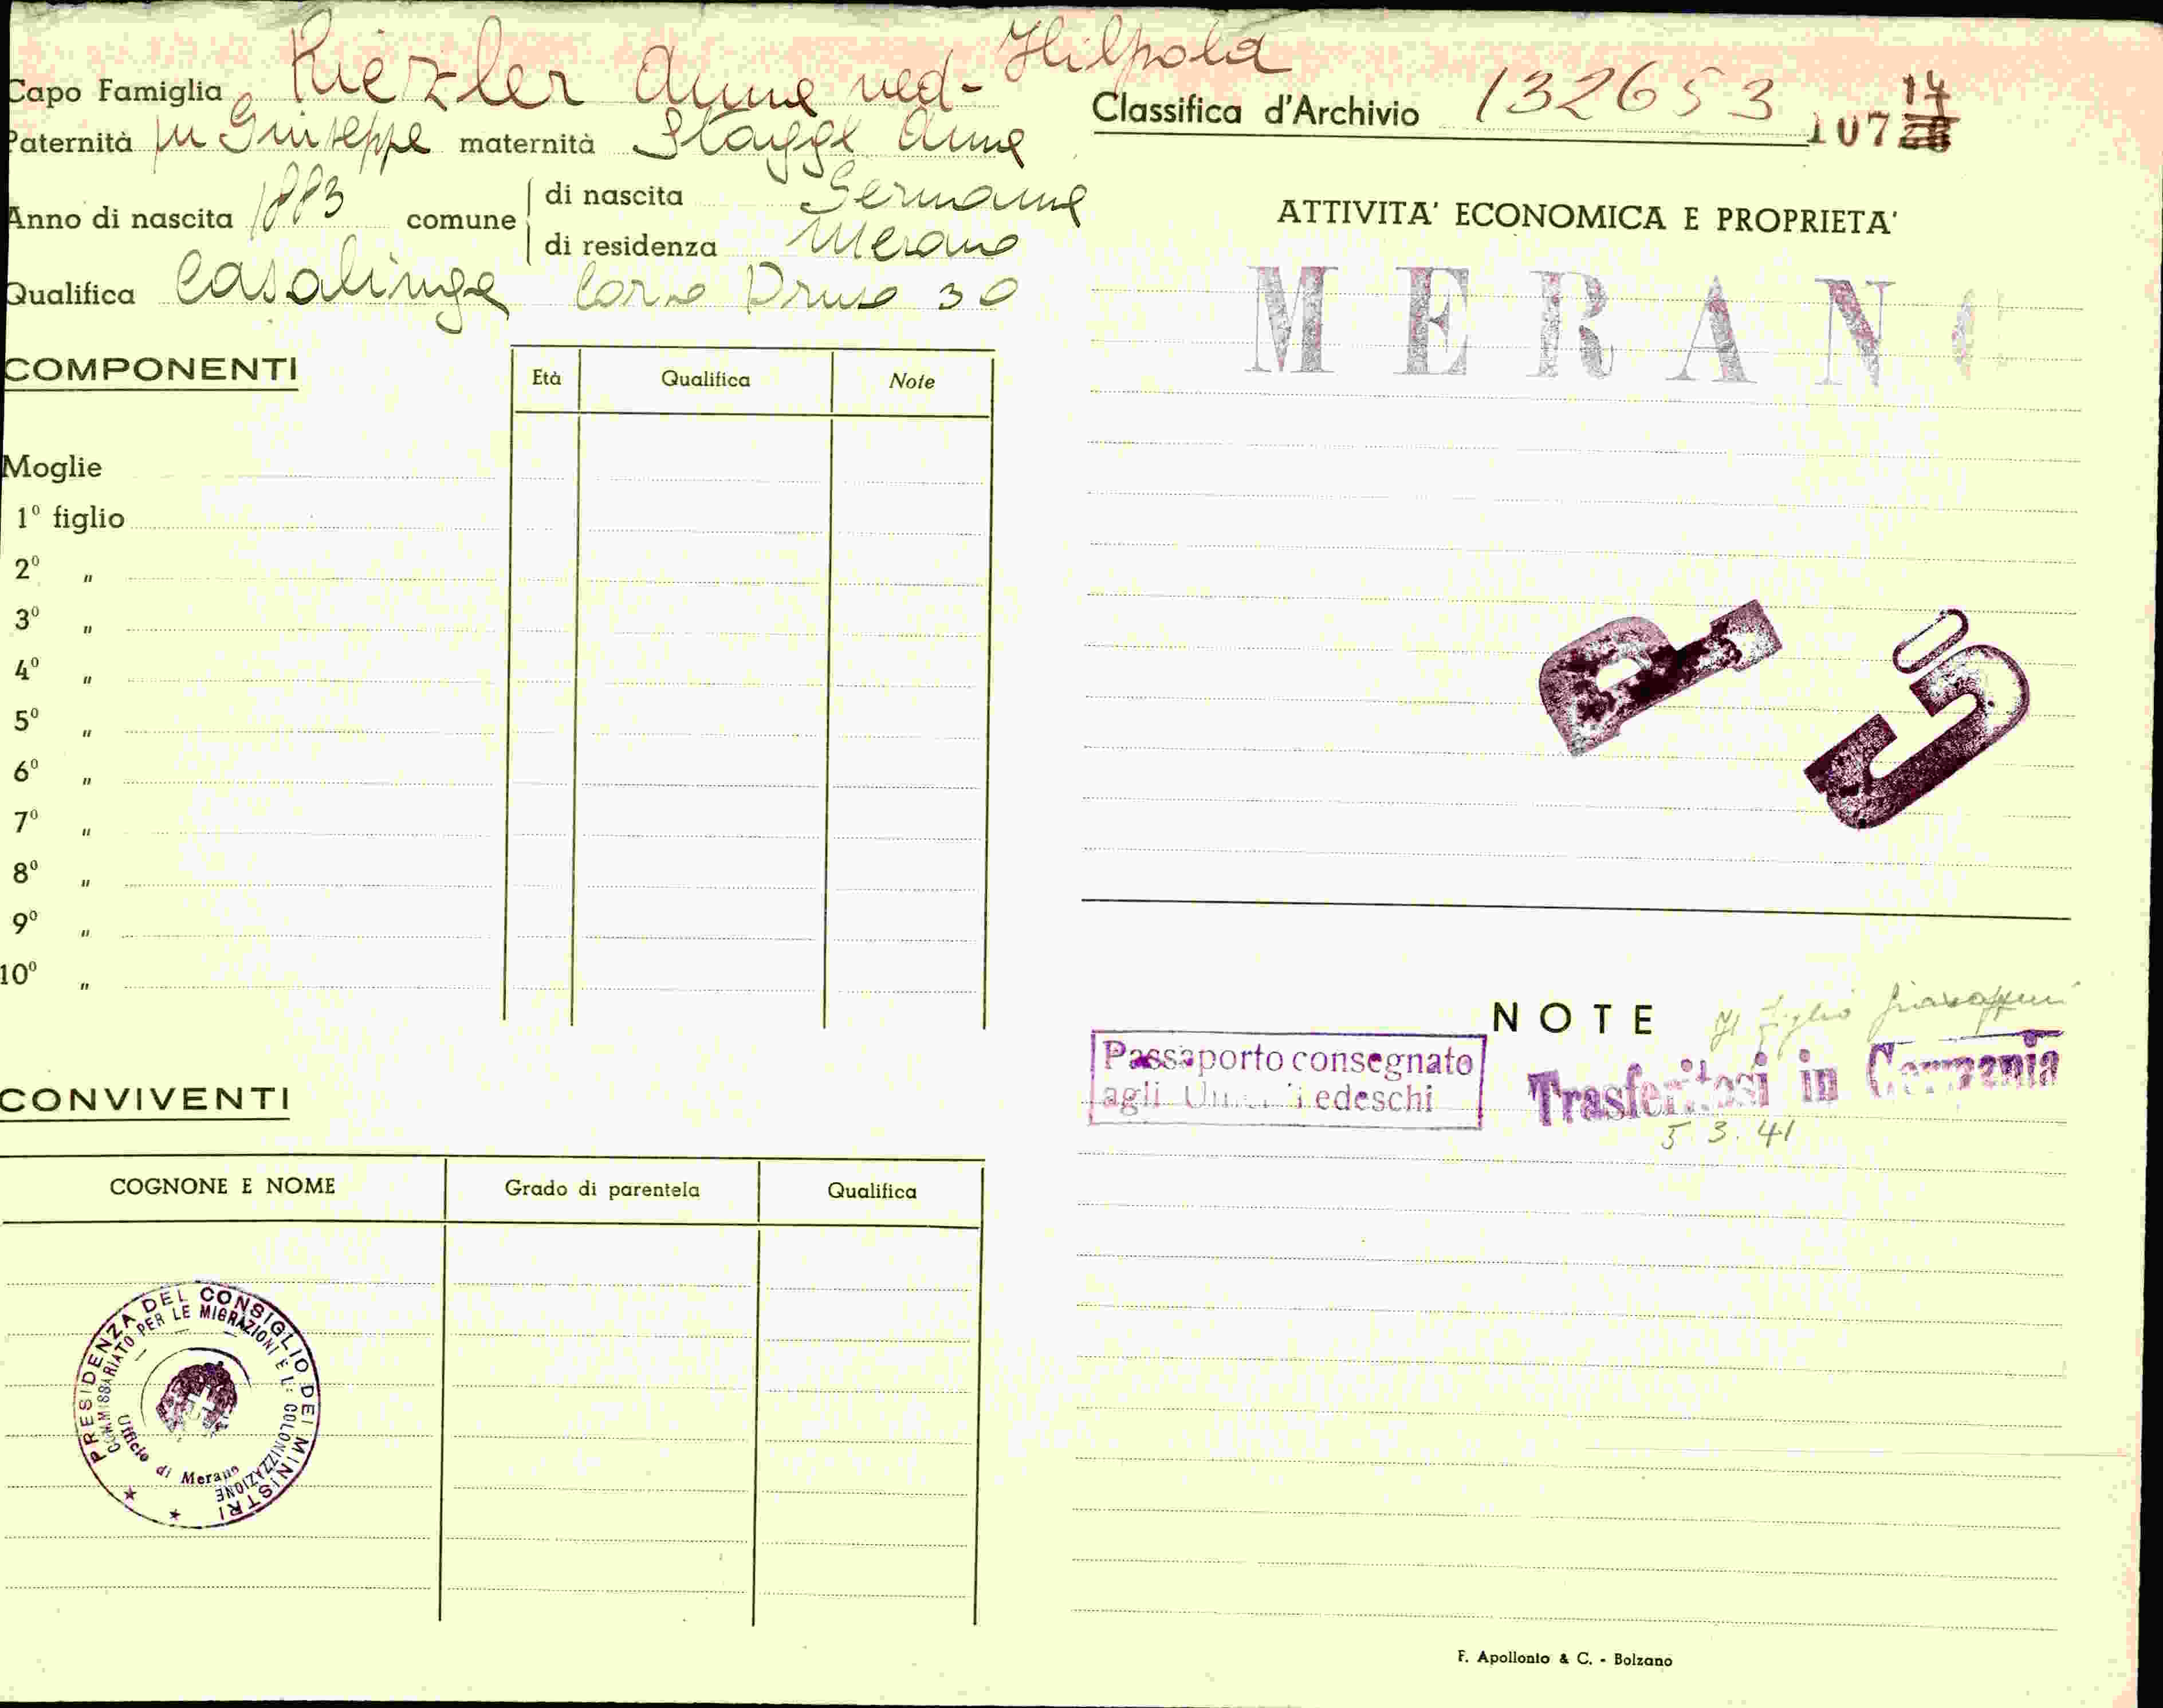 Capo Famiglia Riezler Anna ved. Hilpold
Paternità fu Giuseppe maternità Staggl Anna
Anno di nascita 1883 comune di nascita Germania
di residenza Merano
Qualifica Casalinga Corso Druso 30
COMPONENTI
Età Qualifica Note
Moglie
1º figlio
2º "
3º "
4º "
5º "
6º "
7º "
8º "
9º "
10º "
CONVIVENTI
COGNONE E NOME Grado di parentela Qualifica
PRESIDENZA DEL CONSIGLIO DEI MINISTRI
COMMISSARIATO PER LE MIGRAZIONI E L: COLONIZZAZIONE
Ufficio di Merano
Classifica d'Archivio 132653
14
107
ATTIVITA' ECONOMICA E PROPRIETA'
MERAN
P
NOTE
Il figlio
Passaporto consegnato
agli Tedeschi
Trasferitosi in Germania
5.3.41
F. Apollonio & C. - Bolzano